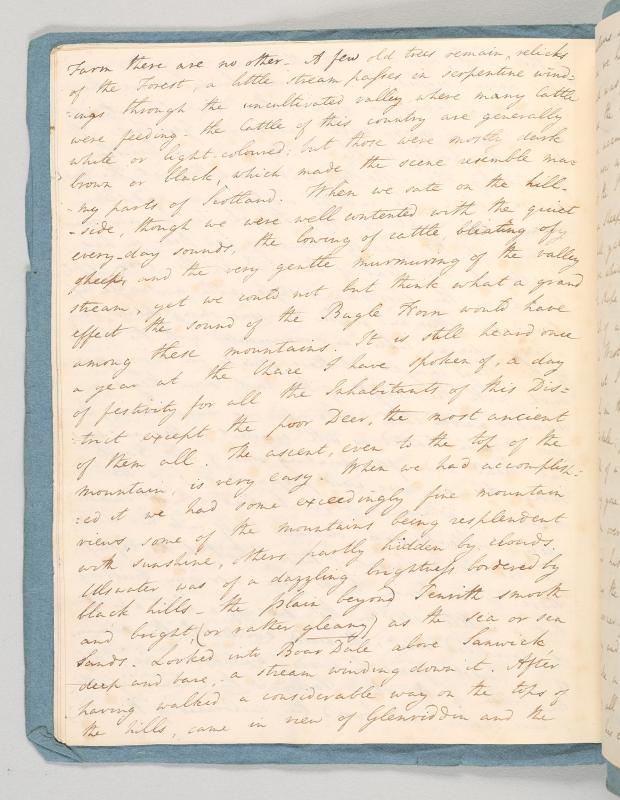 Farm there are no other – A few old trees remain, relicks
of the Forest, a little stream passes in serpentine wind-
:ings through the uncultivated valley where many Cattle
were feeding – the Cattle of this country are generally
white or light-coloured; but those were mostly dark
brown or black, which made the scene resemble ma-
-ny parts of Scotland. When we sate on the hill-
-side, though we were well contented with the quiet
every-day sounds, the lowing of cattle bleating of
sheep, and the very gentle murmuring of the valley
stream, yet we could not but think what a grand
effect the sound of the Bugle Horn would have
among these mountains. It is still heard once
a year at the Chace I have spoken of, a day
of festivity for all the Inhabitants of this Dis-
:trict except the poor Deer, the most ancient
of them all. The ascent, even to the top of the
mountain, is very easy. When we had accomplish-
:ed it we had some exceedingly fine mountain
views, some of the mountains being resplendent
with sunshine, others partly hidden by clouds.
Ulswater was of a dazzling brightness bordered by
black hills – the plain beyond Penrith smooth
and bright, (or rather gleamy) as the sea or sea
sands. Looked into Boar Dale above Sanwick,
deep and bare, a stream winding down it. After
having walked a considerable way on the tops of
the hills, came in view of Glenriddin and the